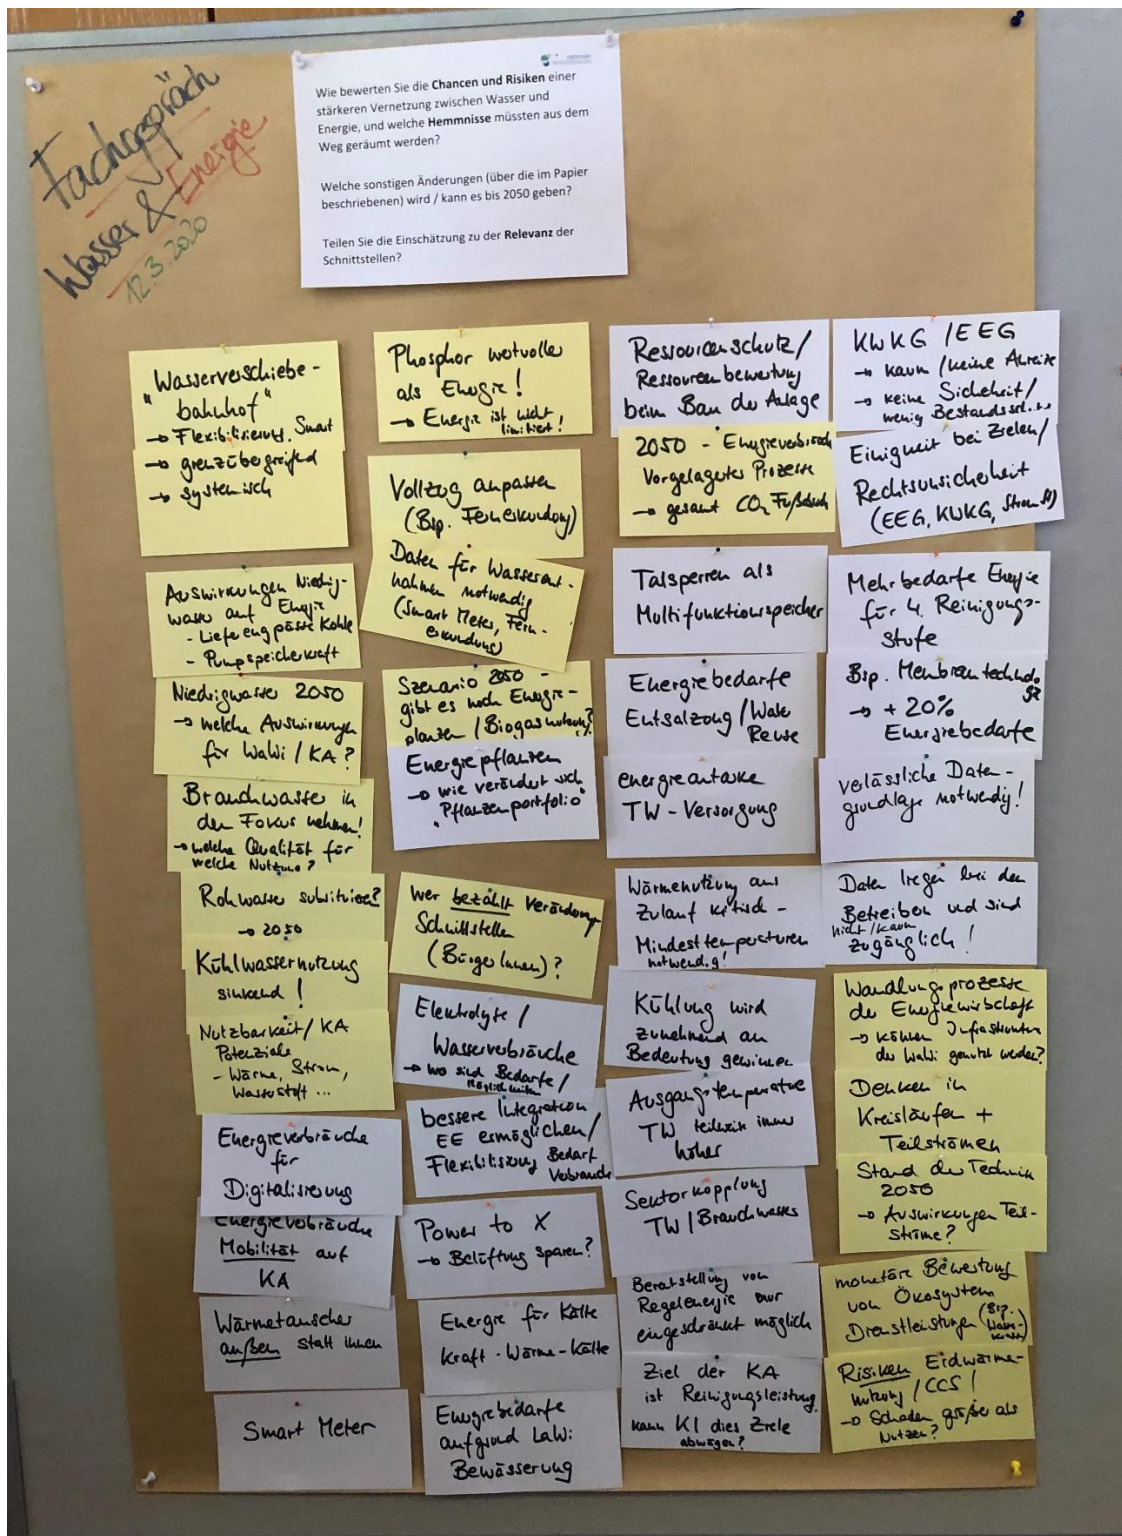 Fachgespräch
Wasser & Energie
12.3.2020
Wie bewerten Sie die Chancen und Risiken einer
stärkeren Vernetzung zwischen Wasser und
Energie, und welche Hemmnisse müssten aus dem
Weg geräumt werden?
Welche sonstigen Änderungen (über die im Papier
beschriebenen) wird / kann es bis 2050 geben?
Teilen Sie die Einschätzung zu der Relevanz der
Schnittstellen?
"Wasserverschiebe-
bahnhof"
→ Flexibilisierung, Smart
→ grenzübergreifend
→ systemisch
Auswirkungen Niedrig-
wasser auf Energie
- Lieferengpässe Kohle
- Pumpspeicherkraft
Niedrigwasser 2050
→ welche Auswirkungen
für WaWi / KA?
Brauchwasser in
den Fokus nehmen!
→ welche Qualität für
welche Nutzung?
Rohwasser substituieren?
→ 2050
Kühlwassernutzung
sinkend!
Nutzbarkeit / KA
Potenziale
- Wärme, Strom,
Wasserstoff ...
Energieverbräuche
für
Digitalisierung
Energieverbräuche
Mobilität auf
KA
Wärmetauscher
außen statt innen
Smart Meter
Phosphor wertvoller
als Energie!
→ Energie ist nicht
limitiert!
Vollzug anpassen
(Bsp. Fernerkundung)
Daten für Wasserent-
nahmen notwendig
(Smart Meter, Fern-
erkundung)
Szenario 2050 -
gibt es noch Energie-
pflanzen / Biogasnutzung?
Energiepflanzen
→ wie verändert sich
"Pflanzenportfolio"
Wer bezahlt Veränderung
Schnittstellen
(BürgerInnen)?
Elektrolyse /
Wasserverbräuche
→ wo sind Bedarfe /
Möglichkeiten
bessere Integration
EE ermöglichen /
Flexibilisierung Bedarf
Verbrauch
Power to X
→ Belüftung sparen?
Energie für Kälte
Kraft-Wärme-Kälte
Energiebedarfe
aufgrund LaWi
Bewässerung
Ressourcenschutz /
Ressourcenbewertung
beim Bau der Anlage
2050 - Energieverbrauch
Vorgelagerter Prozesse
→ gesamt CO₂ Fußabdruck
Talsperren als
Multifunktionsspeicher
Energiebedarfe
Entsalzung / Water
Reuse
energieautarke
TW-Versorgung
Wärmenutzung aus
Zulauf kritisch -
Mindesttemperaturen
notwendig!
Kühlung wird
zunehmend an
Bedeutung gewinnen
Ausgangstemperatur
TW teilweise immer
höher
Sektorkopplung
TW / Brauchwasser
Bereitstellung von
Regelenergie nur
eingeschränkt möglich
Ziel der KA
ist Reinigungsleistung
kann KI dies Ziele
abwägen?
KWKG / EEG
→ kaum / keine Anreize
→ keine Sicherheit /
wenig Bestandsschutz
Einigkeit bei Zielen /
Rechtsunsicherheit
(EEG, KWKG,
Mehrbedarfe Energie
für 4. Reinigungs-
stufe
Bsp. Membrantechnologie
→ + 20%
Energiebedarfe
verlässliche Daten-
grundlage notwendig!
Daten liegen bei den
Betreibern und sind
nicht / kaum
zugänglich!
Wandlungsprozesse
der Energiewirtschaft
→ können Infrastrukturen
der WaWi genutzt werden?
Denken in
Kreisläufen +
Teilströmen
Stand der Technik
2050
→ Auswirkungen Teil-
ströme?
monetäre Bewertung
von Ökosystem
Dienstleistungen (Bsp.
Risiken Erdwärme-
nutzung / CCS!
→ Schaden größer als
Nutzen?